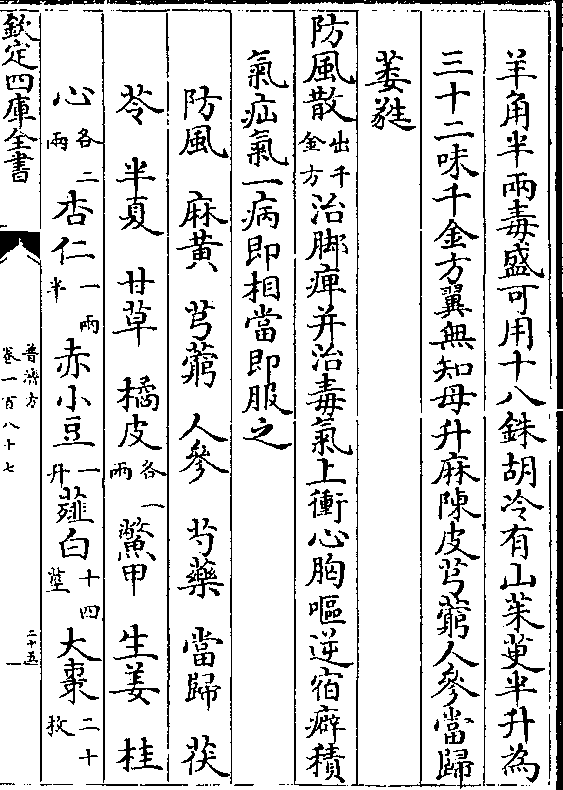 羊角半兩毒盛可用十八銖胡冷有山茱萸半升為
三十二味千金方翼無知母升麻陳皮芎藭人參當歸
萎蕤
防風散出千金方治脚痺并治毒氣上衝心胸嘔逆宿癖積
氣疝氣一病即相當即服之
防風　麻黃　芎藭　人參　芍藥　當歸　茯
苓　半夏　甘草　橘皮各一兩　鱉甲　生姜　桂
心各二兩　杏仁一兩半　赤小豆一升　薤白十四莖　大棗二十枚
欽定四庫全書
普濟方
卷一百八十七
二十五